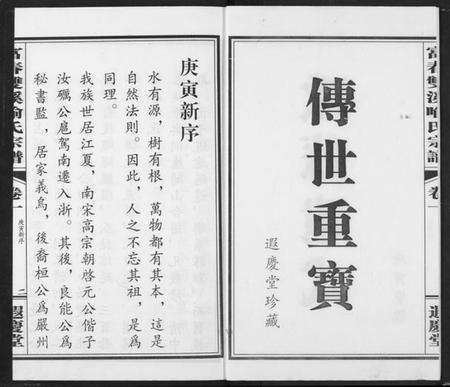 富春雙溪喻氏宗譜
卷一
遐慶堂
傳世重寶
遐慶堂珍藏
庚寅新序
水有源，樹有根，萬物都有其本，這是
自然法則。因此，人之不忘其祖，是爲
同理。
我族世居江夏，南宋高宗朝啓元公偕子
汝礪公扈駕南遷入浙。其後，良能公爲
秘書監，居家義烏，後裔桓公爲嚴州
富春雙溪喻氏宗譜
卷一
庚寅新序
二
遐慶堂